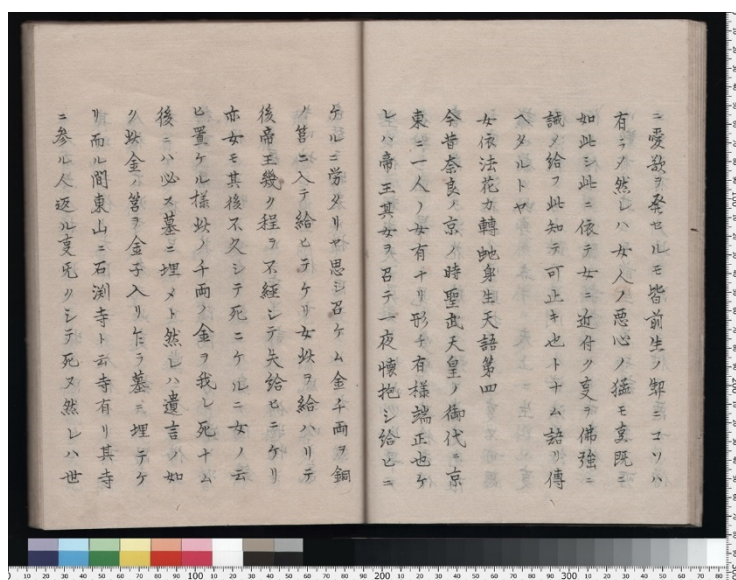 ニ愛欲ヲ発セルモ皆前生ノ契ニコソハ
有ラメ然レハ女人ノ悪心ノ猛キ事既ニ
如此シ此ニ依テ女ニ近付ク事ヲ佛強ニ
誡メ給フ此知テ可止キ也トナム語リ傳
ヘタルトヤ
女依法花力轉蛇身生天語第四
今昔奈良ノ京ノ時聖武天皇ノ御代ニ京
東ニ一人ノ女有ナリ形チ有様端正也ケ
レハ帝王其女ヲ召テ一夜懐抱シ給ヒニ
ケルニ労タリヤ思シ召ケム金千両ヲ銅
ノ筥ニ入テ給ヒテケリ女此ヲ給ハリテ
後帝王幾ク程ヲ不経シテ失給ヒニケリ
亦女モ其後不久シテ死ニケルニ女ノ云
ヒ置ケル様此ノ千両ノ金ヲ我レ死ナム
後ニハ必ス墓ニ埋メト然レハ遺言ノ如
ク此金ノ筥ヲ金子入リ乍ラ墓ニ埋テケ
リ而ル間東山ニ石渕寺ト云寺有リ其寺
ニ参ル人返ル事旡クシテ死ヌ然レハ世